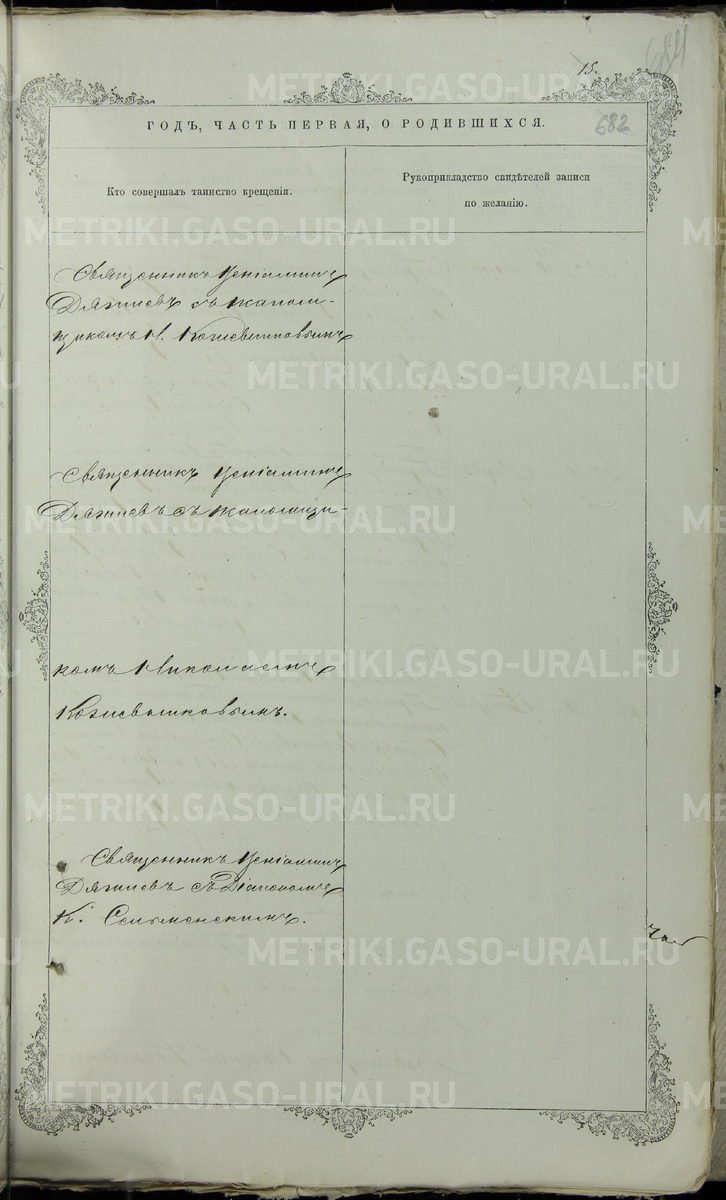 15.
682
ГОДЪ, ЧАСТЬ ПЕРВАЯ, О РОДИВШИХСЯ.
Кто совершалъ таинство крещенія.
Рукоприкладство свидѣтелей записи
по желанію.
Священникъ Веніаминъ
Дягилевъ съ псалом-
щикомъ Н. Кожевниковымъ
Священникъ Веніаминъ
Дягилевъ съ псаломщи-
комъ Николаемъ
Кожевниковымъ.
Священникъ Веніаминъ
Дягилевъ съ Діакономъ
К.
METRIKI.GASO-URAL.RU